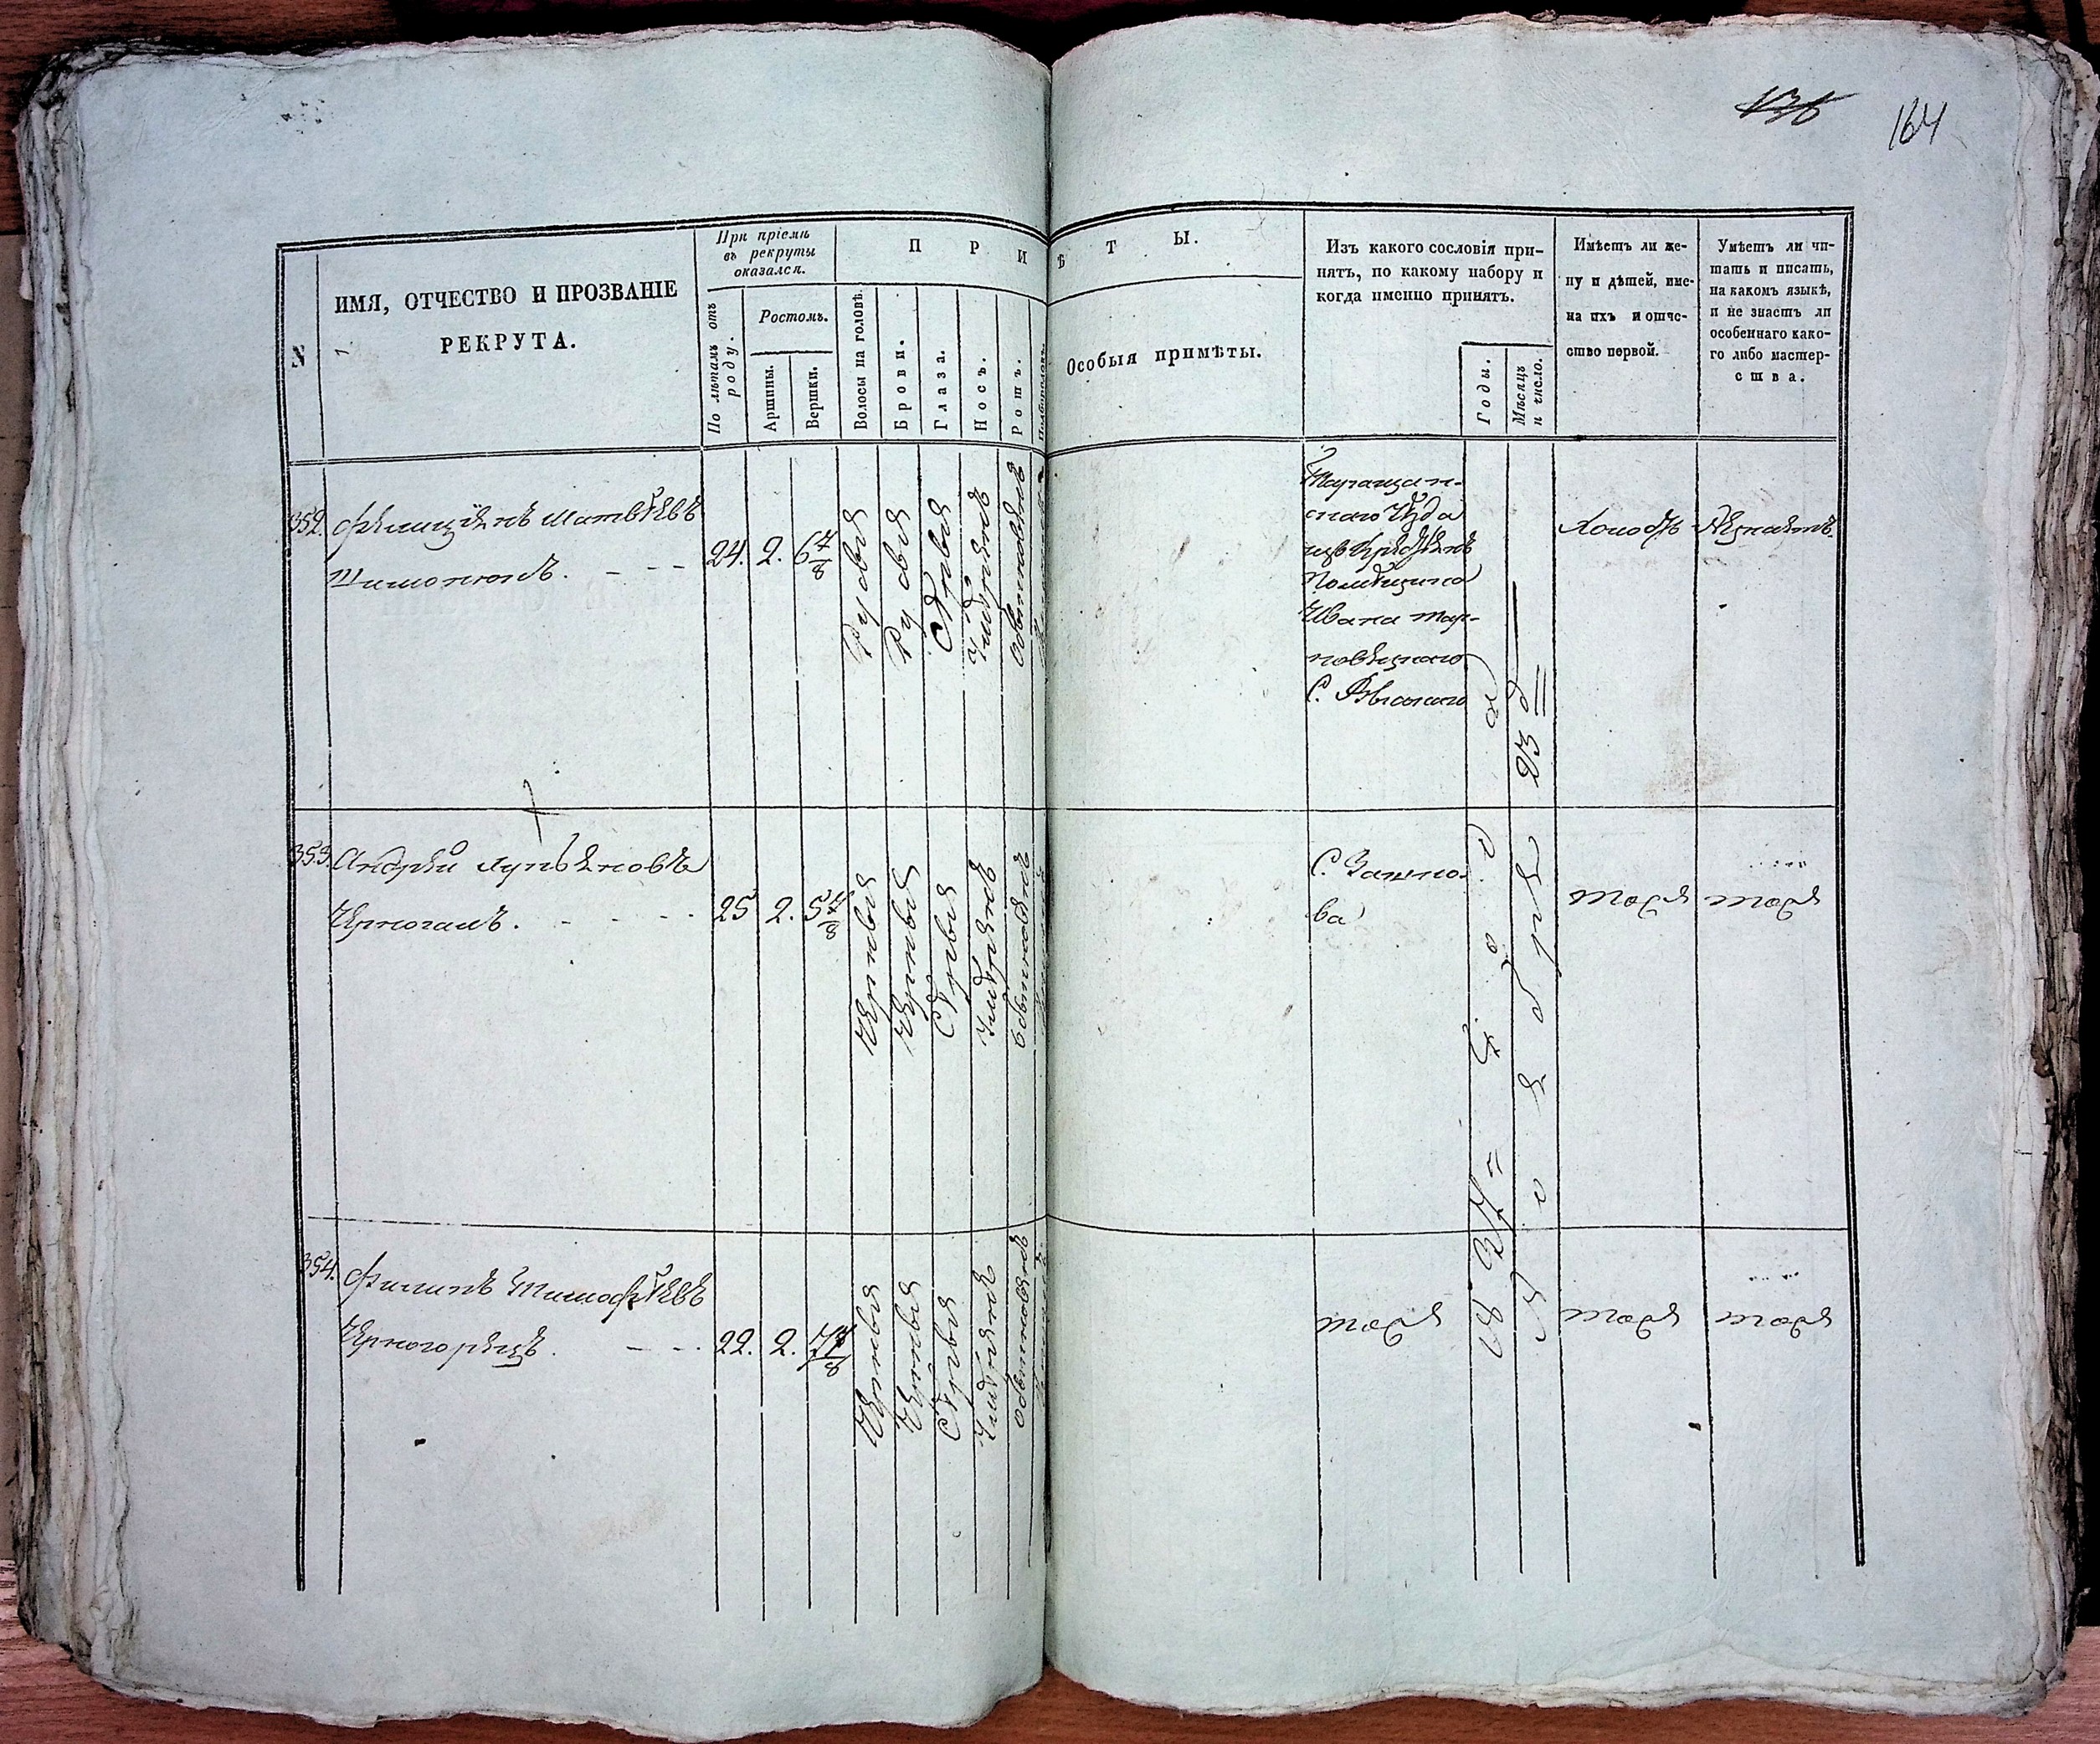 136
164
При пріемѣ
въ рекруты
оказался.
П Р И М Ѣ Т Ы.
N
ИМЯ, ОТЧЕСТВО И ПРОЗВАНІЕ
РЕКРУТА.
1.
По лѣтамъ отъ
роду.
Ростомъ.
Аршины.
Вершки.
Волосы на головѣ.
Брови.
Глаза.
Носъ.
Ротъ.
Подбородокъ.
Особыя примѣты.
Изъ какого сословія при-
нятъ, по какому набору и
когда именно принятъ.
Годы.
Мѣсяцъ
и число.
Имѣетъ ли же-
ну и дѣтей, име-
на ихъ и отче-
ство первой.
Умѣетъ ли чи-
тать и писать,
на какомъ языкѣ,
и не знаетъ ли
особеннаго како-
го либо мастер-
ства.
352.
Фелиціянъ Матвѣевъ
Шимонюкъ.
24.
2.
6 7/8
Русыя
Русыя
Сѣрыя
Умѣренъ
обыкновенъ
Таращан-
скаго уѣзда
изъ крестьянъ
Помѣщика
Ивана Тар-
новецкаго
С.
Холостъ
Незнаетъ.
353.
Андрей Лукьяновъ
Черногалъ.
25
2.
5 4/8
Черныя
Черныя
Сѣрыя
Умѣренъ
обыкновенъ
тоже
тоже
354.
Филипъ Тимофѣевъ
Черногорецъ.
22.
2.
Черныя
Черныя
Сѣрыя
Умѣренъ
обыкновенъ
тоже
тоже
тоже
23
Ноября